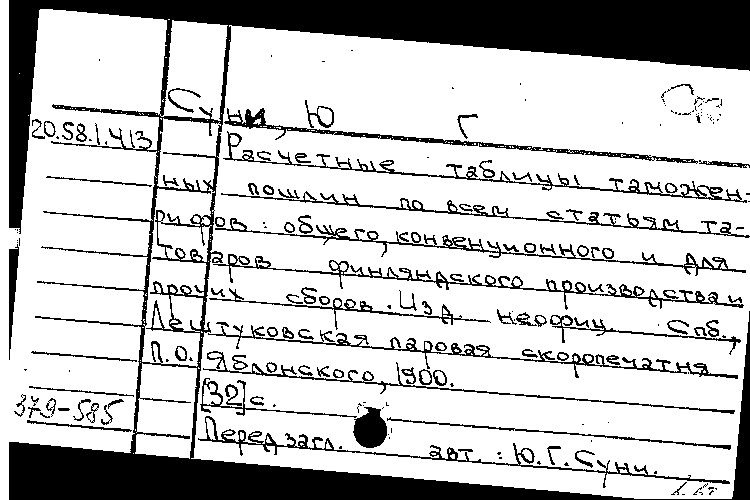 Суни, Ю Г
20.58.1.413
Расчетные таблицы таможен-
ных пошлин по всем статьям та-
рифов: общего, конвенционного и для
товаров финляндского производства и
прочих сборов. Изд. неофиц. Спб.,
Лештуковская паровая скоропечатня
П.О. Яблонского, 1900.
[32] с.
379-585
Перед загл. авт.: Ю.Г. Суни.